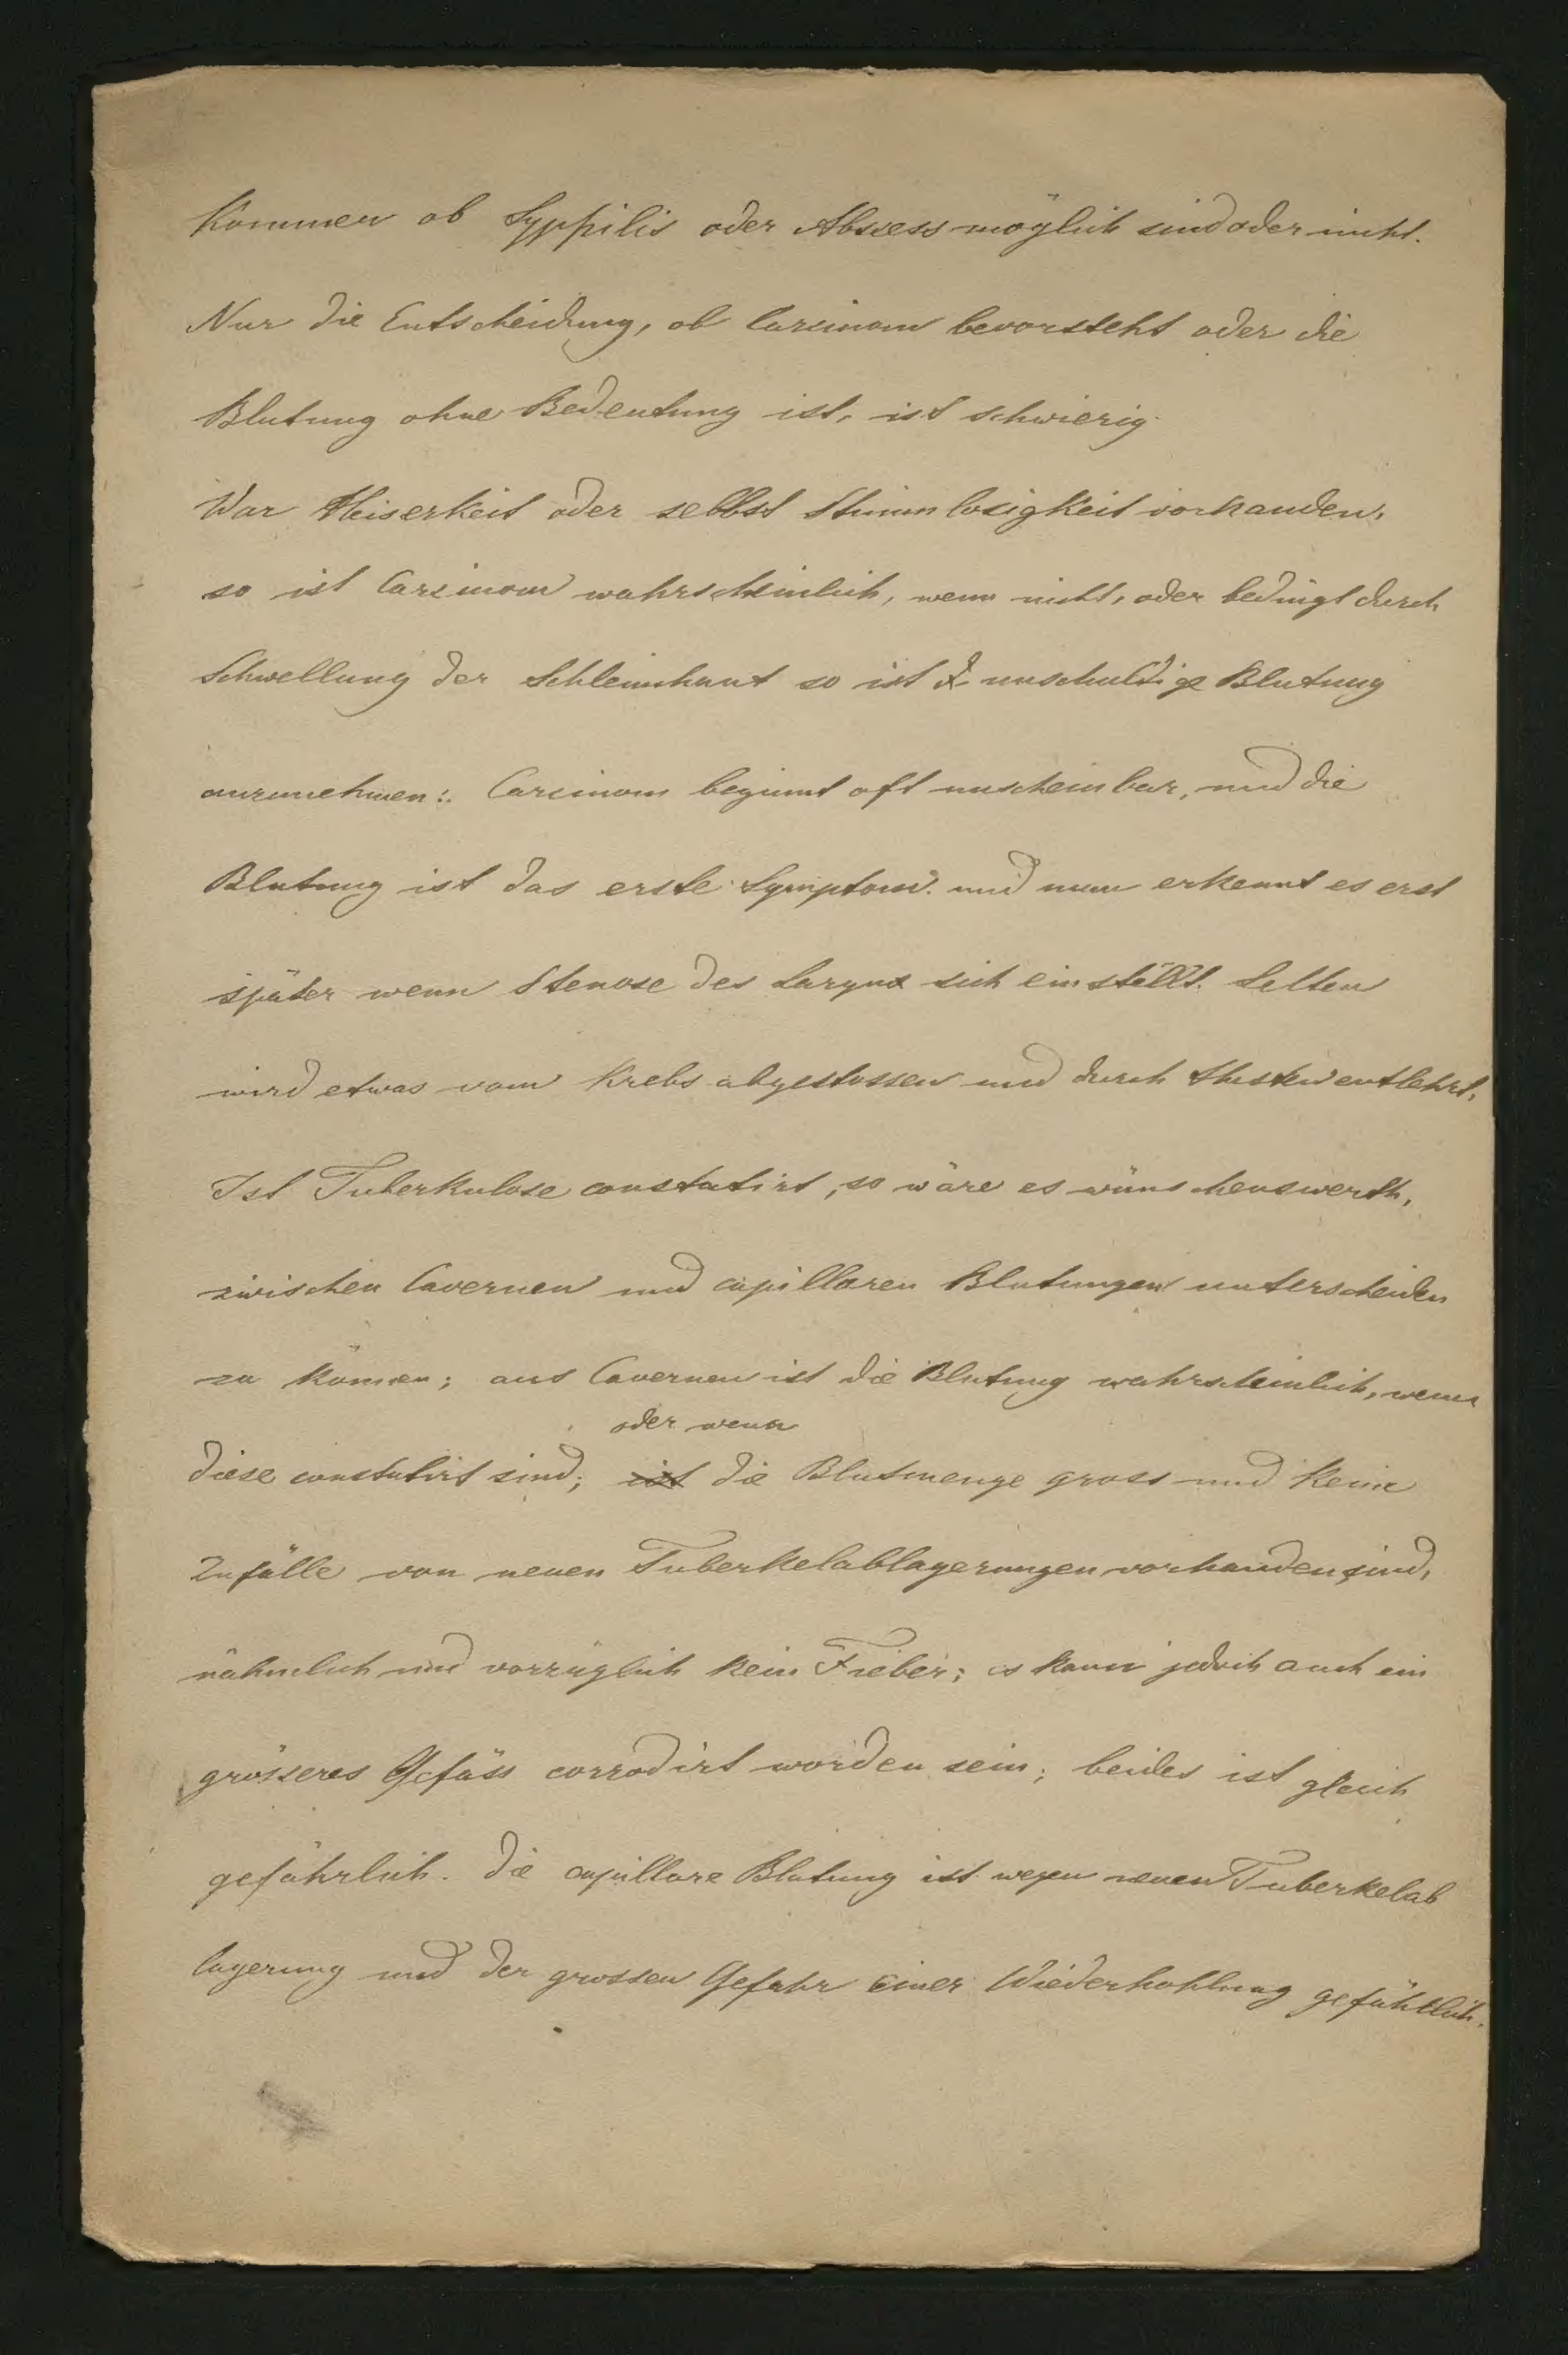 kommen ob Syphilis oder Abscess möglich sind oder nicht.
Nur die Entscheidung, ob Carcinom bevorsteht oder die
Blutung ohne Bedeutung ist, ist schwierig.
War Heiserkeit oder selbst Stimmlosigkeit vorhanden,
so ist Carcinom wahrscheinlich, wenn nicht, oder bedingt durch
Schwellung der Schleimhaut so ist unschuldige Blutung
anzunehmen: Carcinom beginnt oft unscheinbar, und die
Blutung ist das erste Symptom und man erkennt es erst
später wenn Stenose des Larynx sich einstellt. Selten
wird etwas vom Krebs abgestossen und durch Husten entlehrt.
Ist Tuberkulose constatirt, so wäre es wünschenswerth,
zwischen Cavernen und capillaren Blutungen unterscheiden
zu können; aus Cavernen ist die Blutung wahrscheinlich, wenn
oder wenn
diese constatirt sind; ist die Blutmenge gross und keine
Zufälle von neuen Tuberkelablagerungen vorhanden sind,
nähmlich und vorzüglich kein Fieber; es kann jedoch auch ein
grösseres Gefäss corrodirt worden sein; beides ist gleich
gefährlich. Die capillare Blutung ist wegen neuen Tuberkelab
lagerung und der grossen Gefahr einer Wiederhohlung gefährlich.